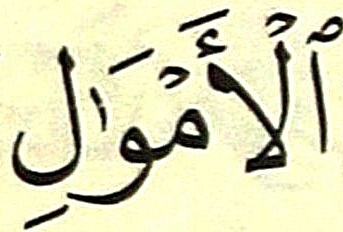 ٱلۡأَمۡوَٰلِ